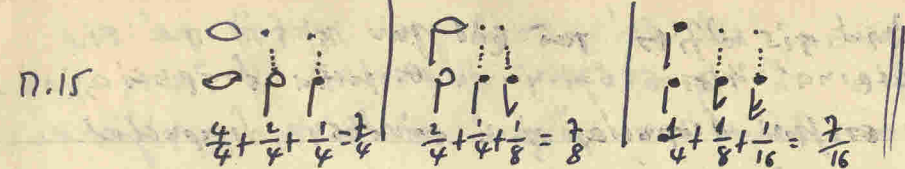 П.15
4/4 + 2/4 + 1/4 = 7/4 | 2/4 + 1/4 + 1/8 = 7/8 | 1/4 + 1/8 + 1/16 = 7/16